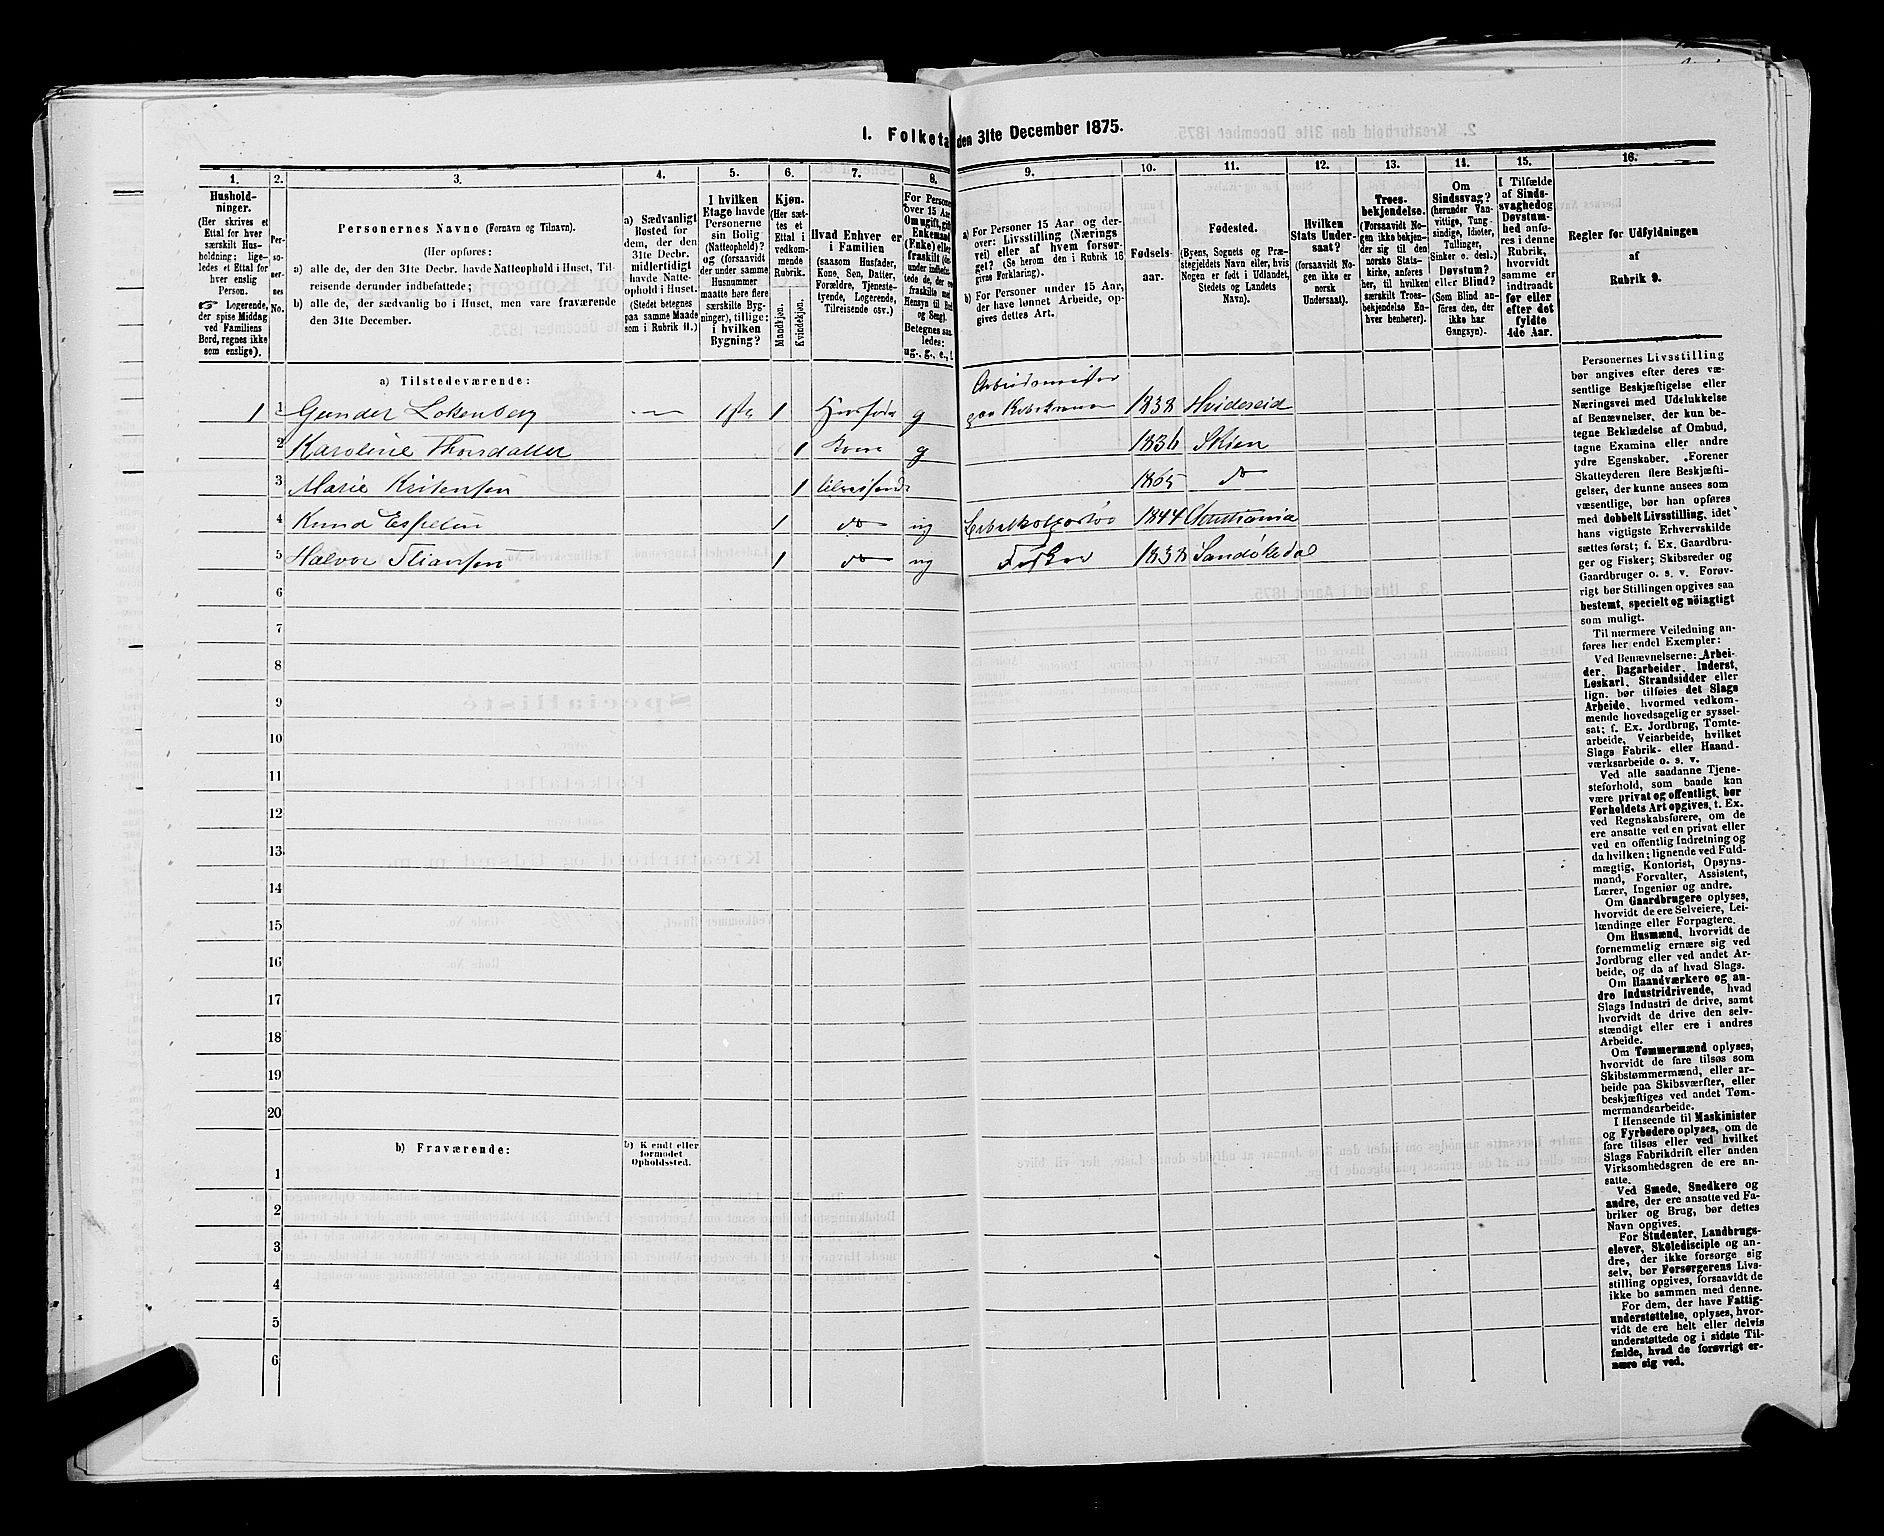 I. Folketa den 31te December 1875.
1. 2. 3. 4. 5. 6. 7. 8. 9. 10. 11. 12. 13. 14. 15. 16.
Hushold-
ninger.
(Her skrives et
Ettal for hver
særskilt Hus-
holdning; lige-
ledes et Ettal for
hver enslig
Person.
☞ Logerende,
der spise Middag
ved Familiens
Bord, regnes ikke
som enslige).
Per-
so-
ner-
nes
No.
Personernes Navne (Fornavn og Tilnavn).
(Her opføres:
a) alle de, der den 31te Decbr. havde Natteophold i Huset, Til-
reisende derunder indbefattede;
b) alle de, der sædvanlig bo i Huset, men vare fraværende
den 31te December.
a) Sædvanligt
Bosted for
dem, der den
31te Decbr.
midlertidigt
havde Natte-
ophold i Huset.
(Stedet betegnes
paa samme Maade
som i Rubrik 11.)
I hvilken
Etage havde
Personerne
sin Bolig
(Natteophold)?
og (forsaavidt
der under samme
Husnummer
maatte høre flere
særskilte Byg-
ninger), tillige:
i hvilken
Bygning?
Kjøn.
(Her sæt-
tes et
Ettal i
vedkom-
mende
Rubrik.
Mandkjøn.
Kvindekjøn.
Hvad Enhver er
i Familien
(saasom Husfader,
Kone, Søn, Datter,
Forældre, Tjeneste-
tyende, Logerende,
Tilreisende osv.)
For Persone
over 15 Aar
Om ugift, gift
Enkemand
(Enke) eller
fraskilt (de
under indbefat-
tede de, der ere
fraskilte med
Hensyn til Bord
og Seng).
Betegnes saa-
ledes:
ug., g., e., f.
a) For Personer 15 Aar og der-
over: Livsstilling (Nærings
vei) eller af hvem forsør-
get? (Se herom den i Rubrik 16
givne Forklaring).
b) For Personer under 15 Aar,
der have lønnet Arbeide, op-
gives dettes Art.
Fødsels-
aar.
Fødested.
(Byens, Sognets og Præ-
stegjeldets Navn eller, hvis
Nogen er født i Udlandet,
Stedets og Landets
Navn).
Hvilken
Stats Under-
saat?
(forsaavidt No-
gen ikke er
norsk
Undersaat).
Troes-
bekjendelse.
(Forsaavidt No-
gen ikke bekjen-
der sig til den
norske Stats-
kirke, anføres
her, til hvilken
særskilt Troes-
bekjendelse En-
hver henhører).
Om
Sindssvag?
(herunder Van-
vittige, Tung-
sindige, Idioter,
Tullinger,
Sinker o. desl.)
Døvstum?
eller Blind?
(Som Blind an-
føres den, der
ikke har
Gangsyn).
I Tilfælde
af Sinds-
svaghed og
Døvstum-
hed anfø-
res i denne
Rubrik,
hvorvidt
samme er
indtraadt
før eller
efter det
fyldte
4de Aar.
Regler for Udfyldningen
af
Rubrik 9.
a) Tilstedeværende:
1 1 Gunder Lokenberg 1ste 1 Husfader g Arbeidsmester 1838 Hvideseid
2 Karoline Thorsdatter 1 Kone g 1836 Skien
3 Marie Kristensen 1 1865 do
4 Knud 1 do ug 1844
5 Halvor 1 do ug Fisker 1838 Sandøkedal
6
7
8
9
10
11
12
13
14
15
16
17
18
19
20
b) Fraværende:
b) Kjendt eller
formodet
Opholdssted.
1
2
3
4
5
6
Personernes Livsstilling
bør angives efter deres væ-
sentlige Beskjæftigelse eller
Næringsvei med Udelukkelse
af Benævnelser, der kun be-
tegne Beklædelse af Ombud,
tagne Examina eller andre
ydre Egenskaber. Forener
Skatteyderen flere Beskjæfti-
gelser, der kunne ansees som
væsentlige, bør han opføres
med dobbelt Livsstilling, idet
hans vigtigste Erhvervskilde
sættes først; f. Ex. Gaardbru-
ger og Fisker; Skibsreder og
Gaardbruger o. s. v. Forøv-
rigt bør Stillingen opgives saa
bestemt, specielt og nøiagtigt
som muligt.
Til nærmere Veiledning an-
føres her endel Exempler:
Ved Benævnelserne: Arbei-
der, Dagarbeider, Inderst,
Løskarl, Strandsidder eller
lign. bør tilføies det Slags
Arbeide, hvormed vedkom-
mende hovedsagelig er syssel-
sat; f. Ex. Jordbrug, Tomte-
arbeide, Veiarbeide, hvilket
Slags Fabrik- eller Haand-
værksarbeide o. s. v.
Ved alle saadanne Tjene-
steforhold, som baade kan
være privat og offentligt, bør
Forholdets Art opgives, t. Ex.
ved Regnskabsførere, om de
ere ansatte ved en privat eller
ved en offentlig Indretning og
da hvilken; lignende ved Fuld-
mægtig, Kontorist, Opsyns-
mand, Forvalter, Assistent,
Lærer, Ingeniør og andre.
Om Gaardbrugere oplyses,
hvorvidt de ere Selveiere, Lei-
lændinge eller Forpagtere.
Om Husmænd, hvorvidt de
fornemmelig ernære sig ved
Jordbrug eller ved andet Ar-
beide, og da af hvad Slags.
Om Haandværkere og an-
dre Industridrivende, hvad
Slags Industri de drive, samt
hvorvidt de drive den selv-
stændigt eller ere i andres
Arbeide.
Om Tømmermænd oplyses,
hvorvidt de fare tilsøs som
Skibstømmermænd, eller ar-
beide paa Skibsværfter, eller
beskjæftiges ved andet Tøm-
mermandsarbeide.
I Henseende til Maskinister
og Fyrbødere oplyses, om de
fare tilsøs eller ved hvilket
Slags Fabrikdrift eller anden
Virksomhedsgren de ere an-
satte.
Ved Smede, Snedkere og
andre, der ere ansatte ved Fa-
briker og Brug, bør dettes
Navn opgives.
For Studenter, Landbrugs-
elever, Skoledisciple og an-
dre, der ikke forsørge sig
selv, bør Forsørgerens Livs-
stilling opgives, forsaavidt de
ikke bo sammen med denne.
For dem, der have Fattig-
understøttelse, oplyses, hvor-
vidt de ere helt eller delvis
understøttede og i sidste Til-
fælde, hvad de forøvrigt er-
nære sig ved.